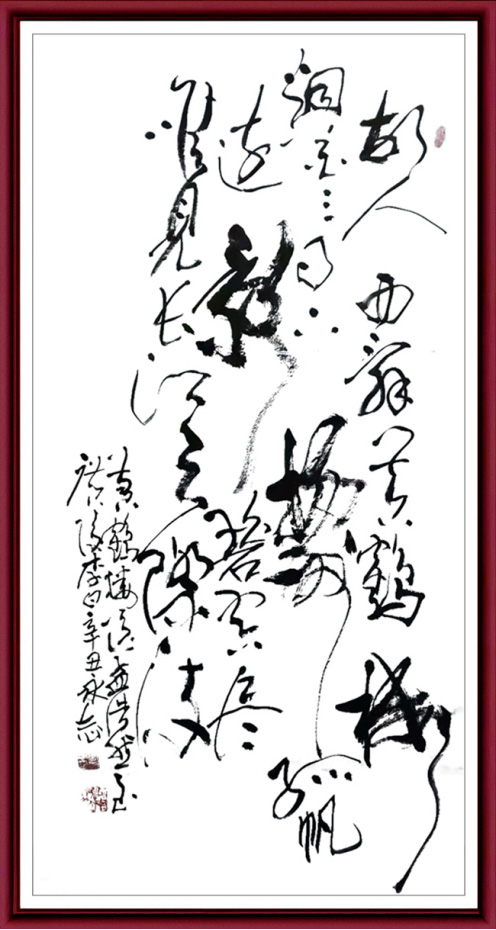 故人西辞黄鶴楼
烟花三月下揚州孤帆
远影碧空尽
唯見长江天際流
黄鶴楼送孟浩然之
广陵李白辛丑永志